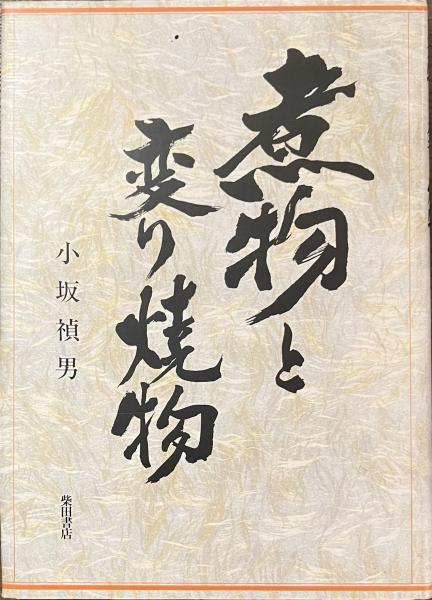 煮物と
変り焼物
小坂禎男
柴田書店